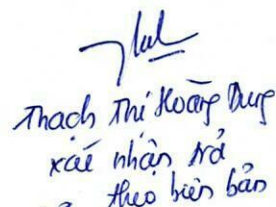 Thạch Thị Hoàng Dung
xác nhận trả
theo biên bản